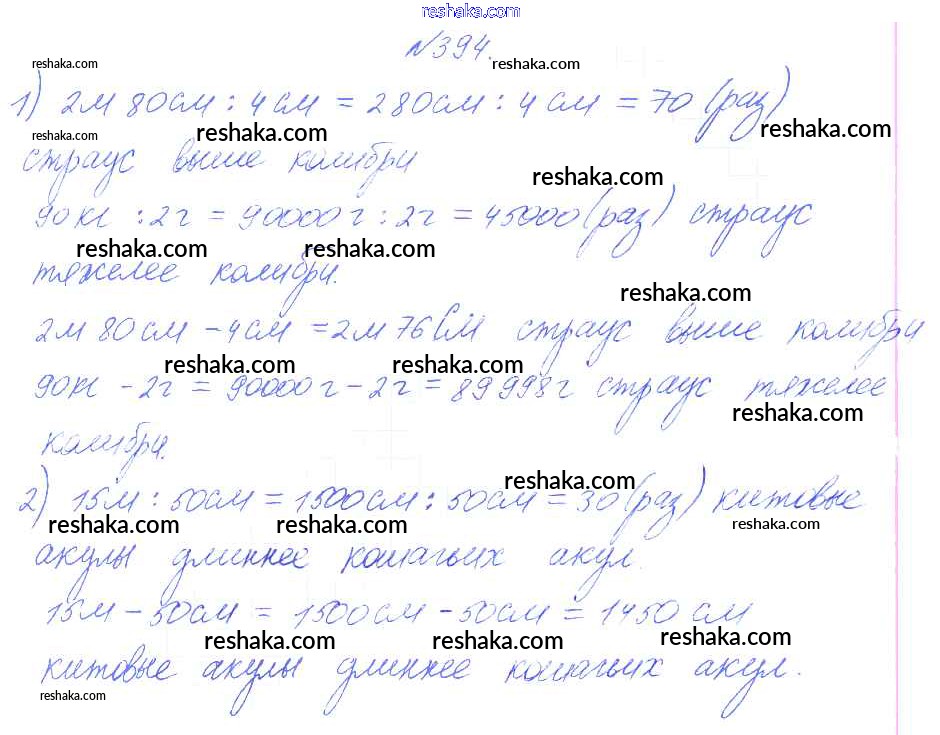 reshaka.com
№394.
reshaka.com reshaka.com
1) 2м 80см : 4см = 280см : 4см = 70 (раз)
reshaka.com reshaka.com reshaka.com
страус выше колибри
reshaka.com
90кг : 2г = 90000г : 2г = 45000 (раз) страус
reshaka.com reshaka.com
тяжелее колибри.
reshaka.com
2м 80см - 4см = 2м 76см страус выше колибри
reshaka.com reshaka.com
90кг - 2г = 90000г - 2г = 89998г страус тяжелее
reshaka.com
колибри.
reshaka.com
2) 15м : 50см = 1500см : 50см = 30 (раз) китовые
reshaka.com reshaka.com reshaka.com
акулы длиннее кошачьих акул.
15м - 50см = 1500см - 50см = 1450 см
reshaka.com reshaka.com reshaka.com
китовые акулы длиннее кошачьих акул.
reshaka.com